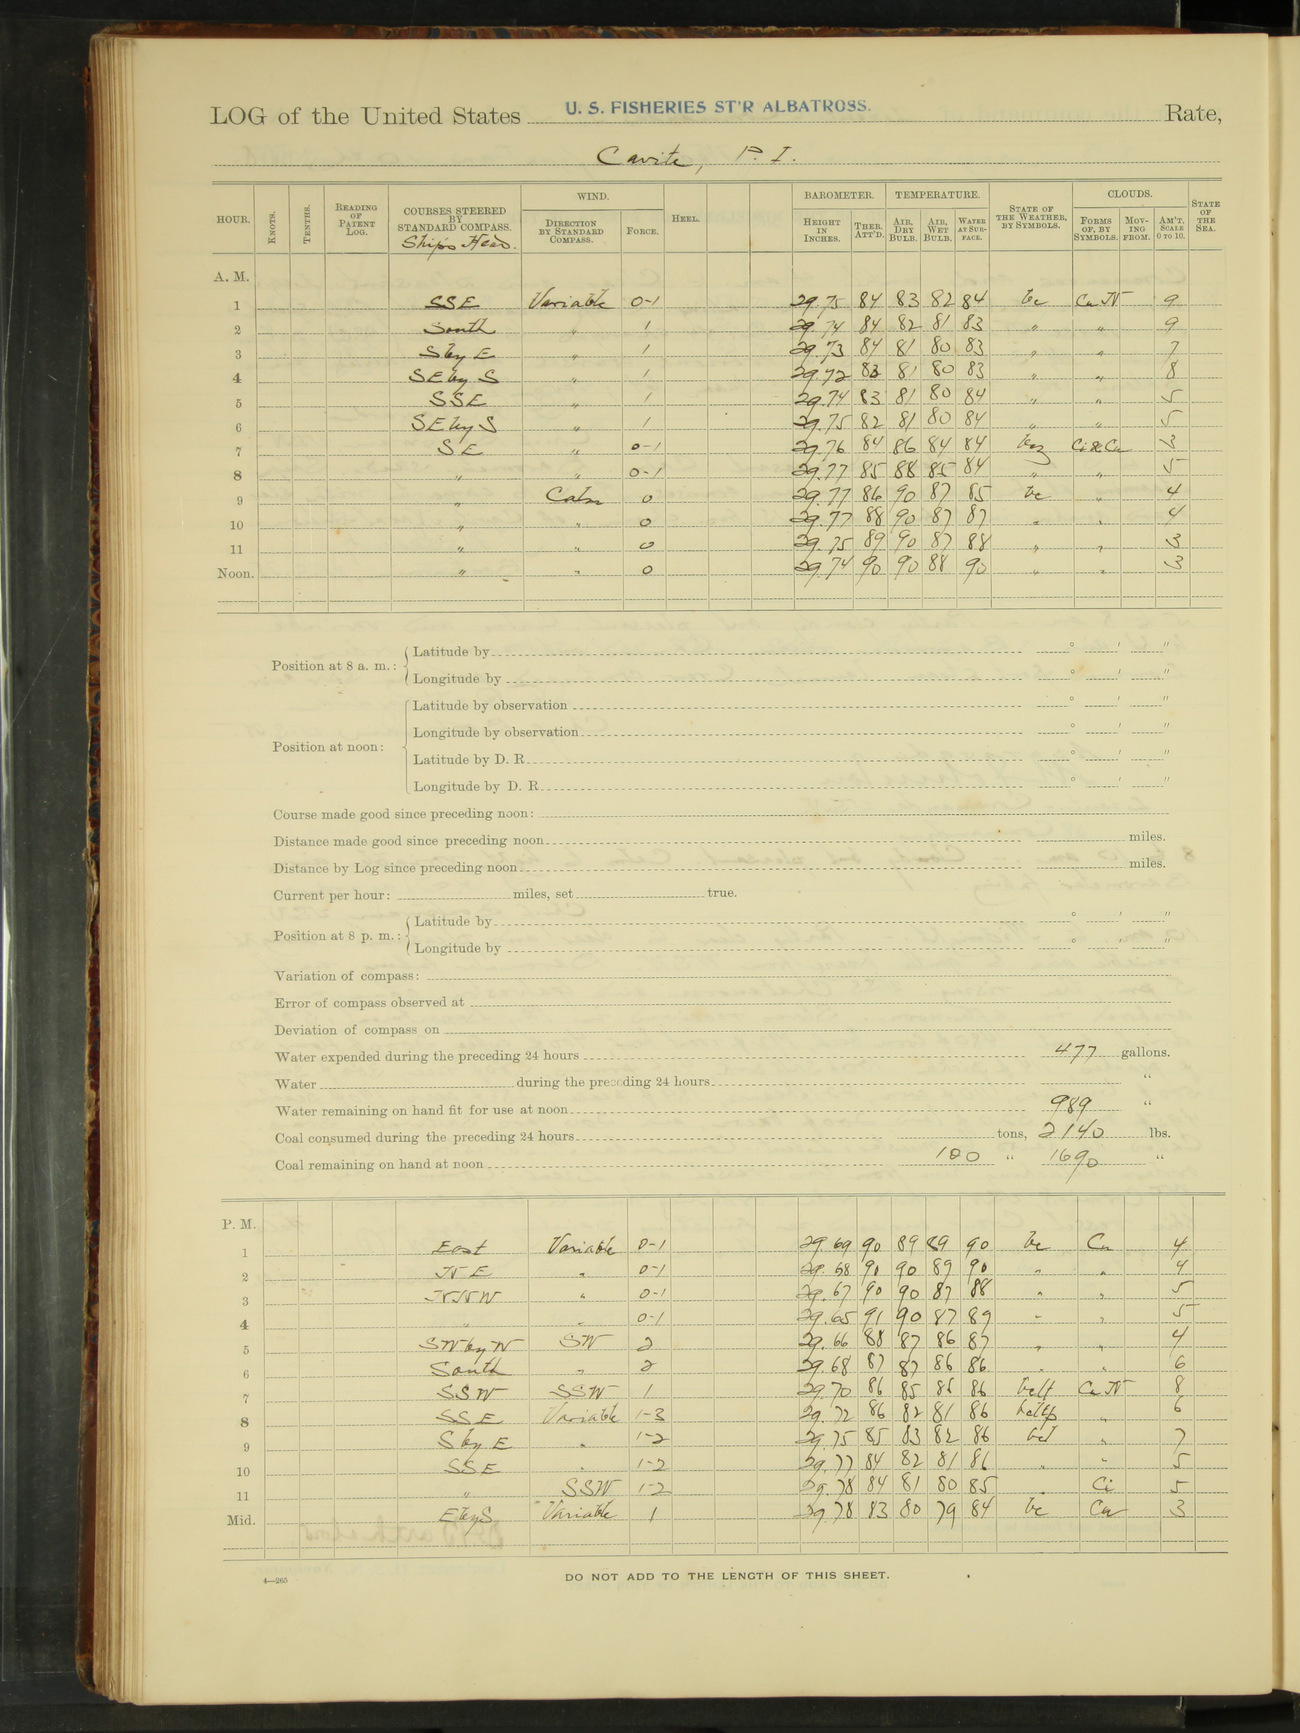 LOG of the United States U. S. FISHERIES ST'R ALBATROSS. Rate,
Cavite, P. I.
HOUR. KNOTS. TENTHS. READING OF PATENT LOG. COURSES STEERED BY STANDARD COMPASS. Ship's Head. WIND. DIRECTION BY STANDARD COMPASS. FORCE. HEEL. BAROMETER. HEIGHT IN INCHES. THER. ATT'D. TEMPERATURE. AIR, DRY BULB. AIR, WET BULB. WATER AT SURFACE. STATE OF THE WEATHER, BY SYMBOLS. CLOUDS. FORMS OF, BY SYMBOLS. MOVING FROM. AM'T. SCALE 0 TO 10. STATE OF THE SEA.
A. M.
1 SSE Variable 0-1 29.75 84 83 82 84 bc Cu N 9
2 South " 1 29.74 84 82 81 83 " " 9
3 S by E " 1 29.73 84 81 80 83 " " 7
4 SE by S " 1 29.72 83 81 80 83 " " 8
5 SSE " 1 29.74 83 81 80 84 " " 5
6 SE by S " 1 29.75 82 81 80 84 " " 5
7 SE " 0-1 29.76 84 86 84 84 bcz Ci & Cu 3
8 " " 0-1 29.77 85 88 85 84 " " 5
9 " Calm 0 29.77 86 90 87 85 bc " 4
10 " " 0 29.77 88 90 87 87 " " 4
11 " " 0 29.75 89 90 87 88 " " 3
Noon. " " 0 29.74 90 90 88 90 " " 3
Position at 8 a. m.: Latitude by ° ' "
Longitude by ° ' "
Position at noon: Latitude by observation ° ' "
Longitude by observation ° ' "
Latitude by D. R. ° ' "
Longitude by D. R. ° ' "
Course made good since preceding noon:
Distance made good since preceding noon miles.
Distance by Log since preceding noon miles.
Current per hour: miles, set true.
Position at 8 p. m.: Latitude by ° ' "
Longitude by ° ' "
Variation of compass:
Error of compass observed at
Deviation of compass on
Water expended during the preceding 24 hours 477 gallons.
Water during the preceding 24 hours "
Water remaining on hand fit for use at noon 989 "
Coal consumed during the preceding 24 hours tons, 2140 lbs.
Coal remaining on hand at noon 100 " 1690 "
P. M.
1 East Variable 0-1 29.69 90 89 89 90 bc Cu 4
2 NE " 0-1 29.68 90 90 89 90 " " 4
3 NNW " 0-1 29.67 90 90 87 88 " " 5
4 " " 0-1 29.65 91 90 87 89 " " 5
5 SW by W SW 2 29.66 88 87 86 87 " " 4
6 South " 2 29.68 87 87 86 86 " " 6
7 SSW SSW 1 29.70 86 85 85 86 Cu N 8
8 SSE Variable 1-3 29.72 86 82 81 86 " 6
9 S by E " 1-2 29.75 85 83 82 86 bcl " 7
10 SSE " 1-2 29.77 84 82 81 86 " " 5
11 " SSW 1-2 29.78 84 81 80 85 " Ci 5
Mid. E by S Variable 1 29.78 83 80 79 84 bc Cu 3
4—265
DO NOT ADD TO THE LENGTH OF THIS SHEET.